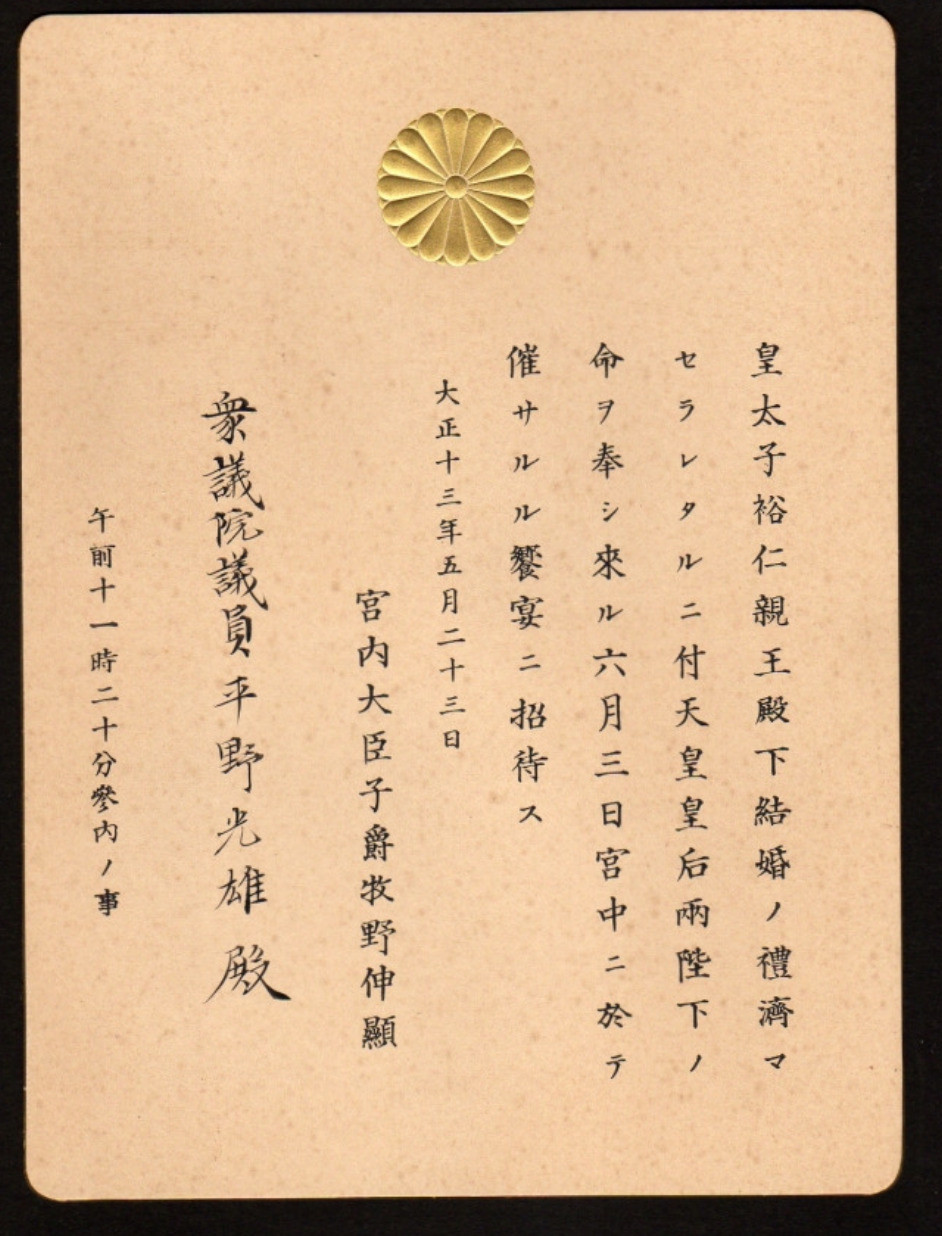 皇太子裕仁親王殿下結婚ノ禮濟マ
セラレタルニ付天皇皇后兩陛下ノ
命ヲ奉シ來ル六月三日宮中ニ於テ
催サルル饗宴ニ招待ス
大正十三年五月二十三日
宮内大臣子爵牧野伸顯
衆議院議員平野光雄殿
午前十一時二十分參内ノ事